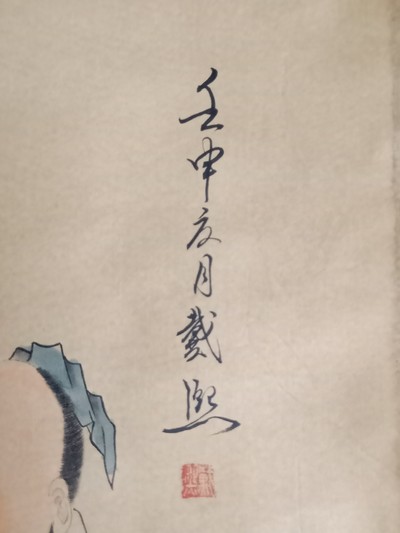 壬申夏月戴熙